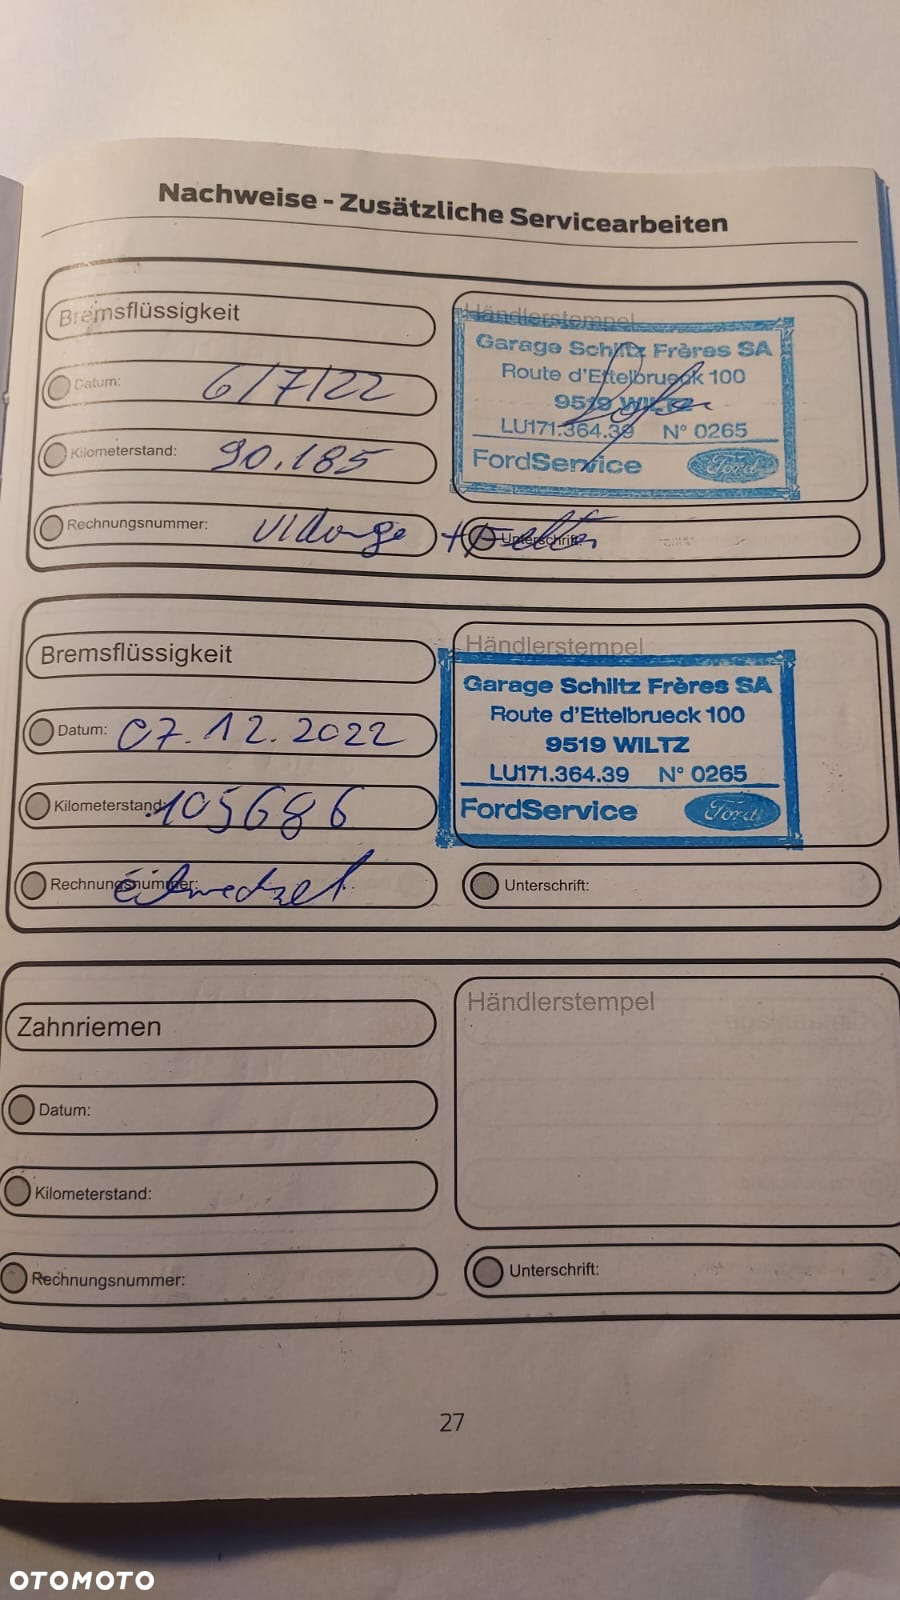 Nachweise - Zusätzliche Servicearbeiten
Bremsflüssigkeit
Händlerstempel
Datum: 6/7/22
Kilometerstand: 90.185
Garage Schiltz Frères SA
Route d'Ettelbrueck 100
9519 WILTZ
LU171.364.39 N° 0265
FordService Ford
Rechnungsnummer: Vidange +
Unterschrift:
Bremsflüssigkeit
Händlerstempel
Datum: 07.12.2022
Kilometerstand: 105686
Garage Schiltz Frères SA
Route d'Ettelbrueck 100
9519 WILTZ
LU171.364.39 N° 0265
FordService Ford
Rechnungsnummer:
Unterschrift:
Zahnriemen
Händlerstempel
Datum:
Kilometerstand:
Rechnungsnummer:
Unterschrift:
27
OTOMOTO